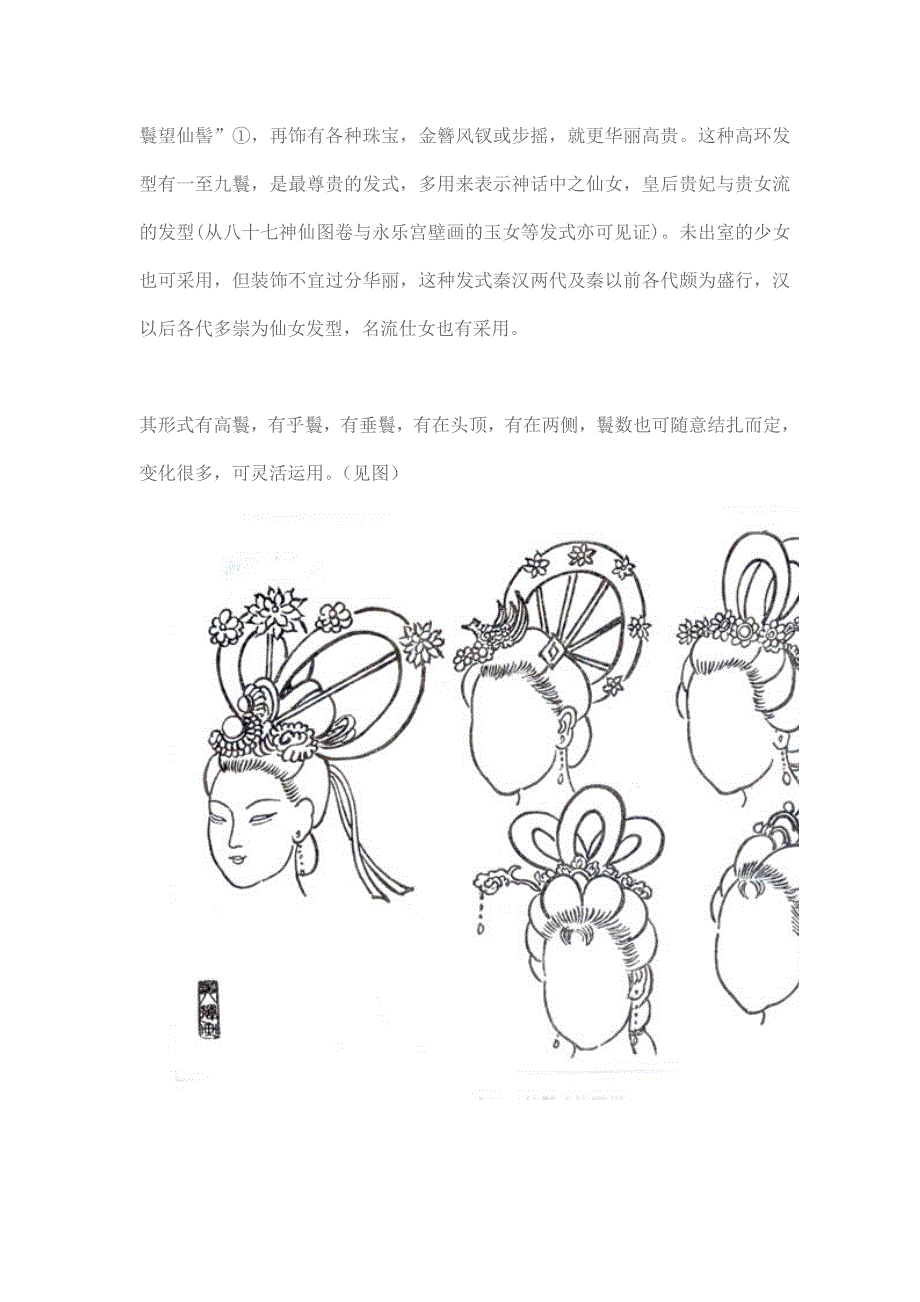 鬟望仙髻”①，再饰有各种珠宝，金簪风钗或步摇，就更华丽高贵。这种高环发
型有一至九鬟，是最尊贵的发式，多用来表示神话中之仙女，皇后贵妃与贵女流
的发型(从八十七神仙图卷与永乐宫壁画的玉女等发式亦可见证)。未出室的少女
也可采用，但装饰不宜过分华丽，这种发式秦汉两代及秦以前各代颇为盛行，汉
以后各代多崇为仙女发型，名流仕女也有采用。
其形式有高鬟，有乎鬟，有垂鬟，有在头顶，有在两侧，鬟数也可随意结扎而定，
变化很多，可灵活运用。（见图）